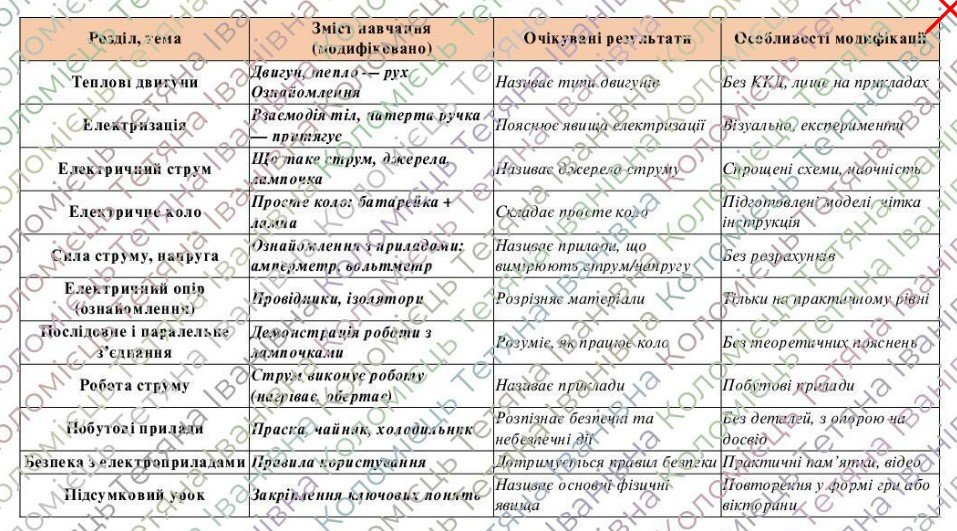 Розділ, тема
Зміст навчання
(модифіковано)
Очікувані результати
Особливості модифікації
Теплові двигуни
Двигун, тепло — рух
Ознайомлення
Називає типи двигунів
Без ККД, лише на прикладах
Електризація
Взаємодія тіл, натерта ручка
— притягує
Пояснює явища електризації
Візуально, експерименти
Електричний струм
Що таке струм, джерела,
лампочка
Називає джерела струму
Спрощені схеми, наочність
Електричне коло
Просте коло: батарейка +
лампа
Складає просте коло
Підготовлені моделі, чітка
інструкція
Сила струму, напруга
Ознайомлення з приладами:
амперметр, вольтметр
Називає прилади, що
вимірюють струм/напругу
Без розрахунків
Електричний опір
(ознайомлення)
Провідники, ізолятори
Розрізняє матеріали
Тільки на практичному рівні
Послідовне і паралельне
з’єднання
Демонстрація роботи з
лампочками
Розуміє, як працює коло
Без теоретичних пояснень
Робота струму
Струм виконує роботу
(нагріває, обертає)
Називає приклади
Побутові прилади
Побутові прилади
Праска, чайник, холодильник
Розпізнає безпечні та
небезпечні дії
Без деталей, з опорою на
досвід
Безпека з електроприладами
Правила користування
Дотримується правил безпеки
Практичні пам’ятки, відео
Підсумковий урок
Закріплення ключових понять
Називає основні фізичні
явища
Повторення у формі гри або
вікторини
Коломієць Тетяна Іванівна